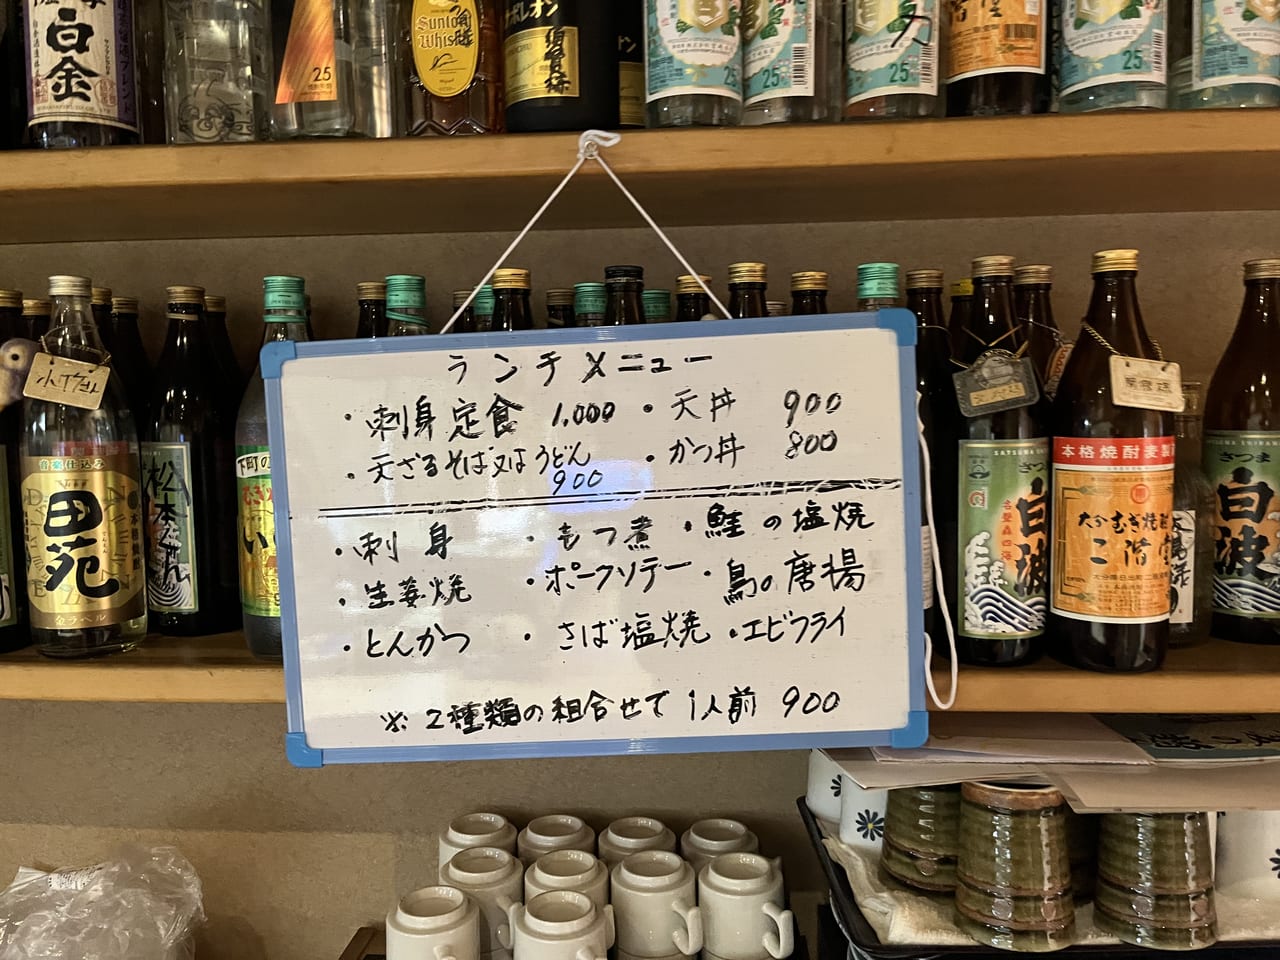 白金
25
Suntory
Whisky
ナポレオン
25
25
25
ランチメニュー
・刺身定食 1,000 ・天丼 900
・天ざるそば又はうどん ・かつ丼 800
900
・刺身 ・もつ煮 ・鮭の塩焼
・生姜焼 ・ポークソテー ・鳥の唐揚
・とんかつ ・さば塩焼 ・エビフライ
※2種類の組合せで1人前 900
音楽仕込み
田苑
金ラベル
下町の
SATSUMA SHIRANAMI
さつま
白波
本格焼酎
大分むぎ焼酎
二階堂
さつま
白波